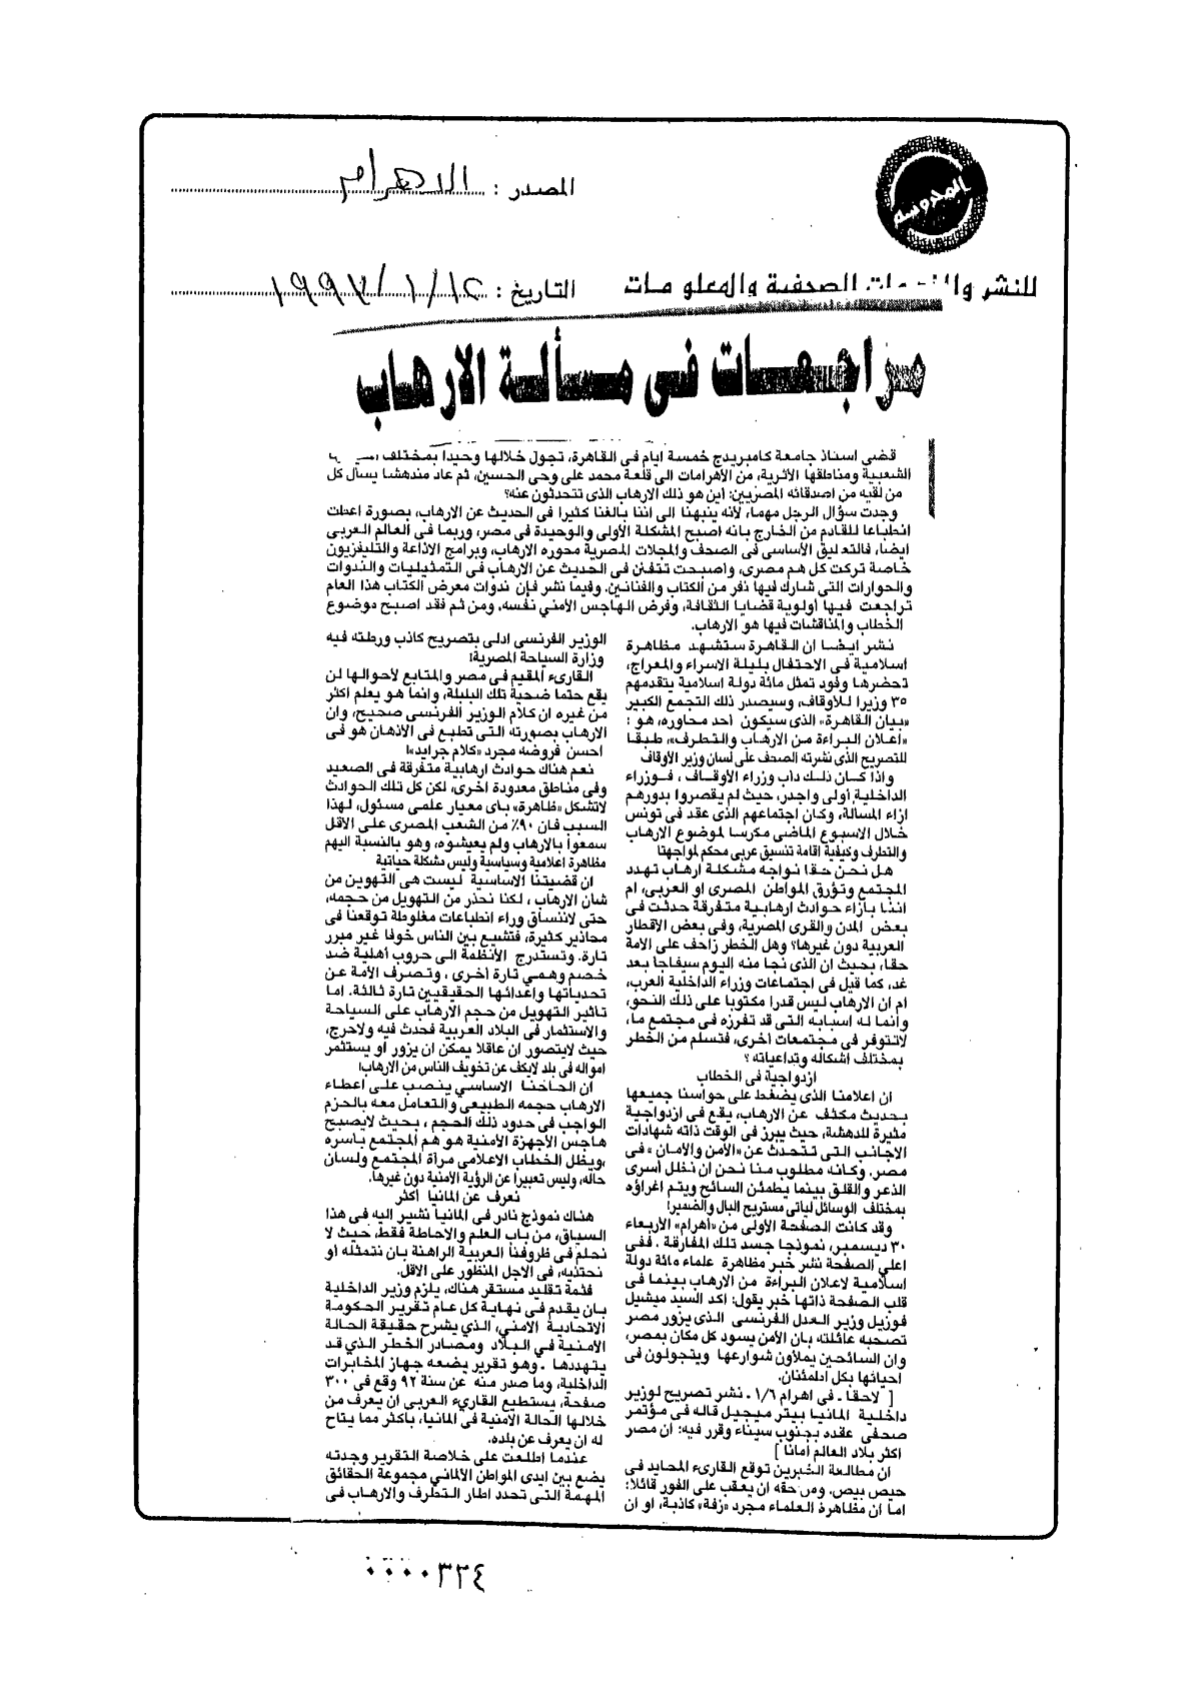 المحروسة
المصدر : الاهرام
للنشر والخدمات الصحفية والمعلومات
التاريخ : ١٩٩٣/١/١٢
مراجعات فى مسألة الارهاب
قضى استاذ جامعة كامبريدج خمسة ايام فى القاهرة، تجول خلالها وحيدا بمختلف
الشعبية ومناطقها الأثرية، من الأهرامات الى قلعة محمد على وحى الحسين، ثم عاد مندهشا يسأل كل
من لقيه من اصدقائه المصريين: اين هو ذلك الارهاب الذى تتحدثون عنه؟
وجدت سؤال الرجل مهما، لأنه ينبهنا الى اننا بالغنا كثيرا فى الحديث عن الارهاب، بصورة اعطت
انطباعا للقادم من الخارج بانه اصبح المشكلة الأولى والوحيدة فى مصر، وربما فى العالم العربى
ايضا، فالتعليق الأساسى فى الصحف والمجلات المصرية محوره الارهاب، وبرامج الاذاعة والتليفزيون
خاصة تركت كل هم مصرى، واصبحت تتفنن فى الحديث عن الارهاب فى التمثيليات والندوات
والحوارات التى شارك فيها نفر من الكتاب والفنانين. وفيما نشر فإن ندوات معرض الكتاب هذا العام
تراجعت فيها أولوية قضايا الثقافة، وفرض الهاجس الأمنى نفسه، ومن ثم فقد اصبح موضوع
الخطاب والمناقشات فيها هو الارهاب.
نشر ايضا ان القاهرة ستشهد مظاهرة
اسلامية فى الاحتفال بليلة الاسراء والمعراج،
تحضرها وفود تمثل مائة دولة اسلامية يتقدمهم
٣٥ وزيرا للأوقاف، وسيصدر ذلك التجمع الكبير
«بيان القاهرة» الذى سيكون أحد محاوره، هو :
«اعلان البراءة من الارهاب والتطرف»، طبقا
للتصريح الذى نشرته الصحف على لسان وزير الأوقاف
واذا كان ذلك داب وزراء الأوقاف ، فوزراء
الداخلية أولى واجدر، حيث لم يقصروا بدورهم
ازاء المسالة، وكان اجتماعهم الذى عقد فى تونس
خلال الاسبوع الماضى مكرسا لموضوع الارهاب
والتطرف وكيفية اقامة تنسيق عربى محكم لمواجهتا
هل نحن حقا نواجه مشكلة ارهاب تهدد
المجتمع وتؤرق المواطن المصرى او العربى، ام
اننا بازاء حوادث ارهابية متفرقة حدثت فى
بعض المدن والقرى المصرية، وفى بعض الاقطار
العربية دون غيرها؟ وهل الخطر زاحف على الامة
حقا، بحيث ان الذى نجا منه اليوم سيفاجا بعد
غد، كما قيل فى اجتماعات وزراء الداخلية العرب،
ام ان الارهاب ليس قدرا مكتوبا على ذلك النحو،
وانما له اسبابه التى قد تفرزه فى مجتمع ما،
لاتتوفر فى مجتمعات أخرى، فتسلم من الخطر
بمختلف اشكاله وتداعياته ؟
ازدواجية فى الخطاب
ان اعلامنا الذى يضغط على حواسنا جميعها
بحديث مكثف عن الارهاب، يقع فى ازدواجية
مثيرة للدهشة، حيث يبرز فى الوقت ذاته شهادات
الاجانب التى تتحدث عن «الأمن والأمان » فى
مصر. وكأنه مطلوب منا نحن ان نظل أسرى
الذعر والقلق بينما يطمئن السائح ويتم اغراؤه
بمختلف الوسائل لياتى مستريح البال والضمير!
وقد كانت الصفحة الأولى من «اهرام» الأربعاء
٣٠ ديسمبر، نموذجا جسد تلك المفارقة . ففى
اعلى الصفحة نشر خبر مظاهرة علماء مائة دولة
اسلامية لاعلان البراءة من الارهاب بينما فى
قلب الصفحة ذاتها خبر يقول: اكد السيد ميشيل
فوزيل وزير العدل الفرنسى الذى يزور مصر
تصحبه عائلته بان الأمن يسود كل مكان بمصر،
وان السائحين يملأون شوارعها ويتجولون فى
احيائها بكل اطمئنان.
[ لاحقا . فى اهرام ١/٦ . نشر تصريح لوزير
داخلية المانيا بيتر ميجيل قاله فى مؤتمر
صحفى عقده بجنوب سيناء وقرر فيه: ان مصر
اكثر بلاد العالم أمانا ]
ان مطالعة الخبرين توقع القارىء المحايد فى
حيص بيص. ومن حقه ان يعقب على الفور قائلا:
اما ان مظاهرة العلماء مجرد «زفة» كاذبة، او ان
الوزير الفرنسى ادلى بتصريح كاذب ورطته فيه
وزارة السياحة المصرية!
القارىء المقيم فى مصر والمتابع لأحوالها لن
يقع حتما ضحية تلك البلبلة، وانما هو يعلم أكثر
من غيره ان كلام الوزير الفرنسى صحيح، وان
الارهاب بصورته التى تطبع فى الأذهان هو فى
احسن فروضه مجرد «كلام جرايد»!
نعم هناك حوادث ارهابية متفرقة فى الصعيد
وفى مناطق معدودة اخرى، لكن كل تلك الحوادث
لاتشكل «ظاهرة» باى معيار علمى مسئول، لهذا
السبب فان ٩٠٪ من الشعب المصرى على الاقل
سمعوا بالارهاب ولم يعيشوه، وهو بالنسبة اليهم
مظاهرة اعلامية وسياسية وليس مشكلة حياتية
ان قضيتنا الاساسية ليست هى التهوين من
شان الارهاب ، لكنا نحذر من التهويل من حجمه،
حتى لاننساق وراء انطباعات مغلوطة توقعنا فى
محاذير كثيرة، فتشيع بين الناس خوفا غير مبرر
تارة. وتستدرج الأنظمة الى حروب أهلية ضد
خصم وهمى تارة أخرى ، وتصرف الأمة عن
تحدياتها واعدائها الحقيقيين تارة ثالثة. اما
تاثير التهويل من حجم الارهاب على السياحة
والاستثمار فى البلاد العربية فحدث فيه ولاحرج،
حيث لايتصور ان عاقلا يمكن ان يزور أو يستثمر
امواله فى بلد لايكف عن تخويف الناس من الارهاب!
ان الحاحنا الاساسى ينصب على اعطاء
الارهاب حجمه الطبيعى والتعامل معه بالحزم
الواجب فى حدود ذلك الحجم ، بحيث لايصبح
هاجس الأجهزة الأمنية هو هم المجتمع باسره
،ويظل الخطاب الاعلامى مرآة المجتمع ولسان
حاله، وليس تعبيرا عن الرؤية الأمنية دون غيرها.
نعرف عن المانيا أكثر
هناك نموذج نادر فى المانيا نشير اليه فى هذا
السياق، من باب العلم والاحاطة فقط، حيث لا
نحلم فى ظروفنا العربية الراهنة بان نتمثله أو
نحتذيه، فى الاجل المنظور على الاقل.
فثمة تقليد مستقر هناك، يلزم وزير الداخلية
بان يقدم فى نهاية كل عام تقرير الحكومة
الاتحادية الامنى، الذى يشرح حقيقة الحالة
الامنية فى البلاد ومصادر الخطر الذى قد
يتهددها . وهو تقرير يضعه جهاز المخابرات
الداخلية، وما صدر منه عن سنة ٩٢ وقع فى ٣٠٠
صفحة، يستطيع القارىء العربى ان يعرف من
خلالها الحالة الامنية فى المانيا، باكثر مما يتاح
له ان يعرف عن بلده.
عندما اطلعت على خلاصة التقرير وجدته
يضع بين ايدى المواطن الالمانى مجموعة الحقائق
المهمة التى تحدد اطار التطرف والارهاب فى
٠٠٠٠٣٢٤